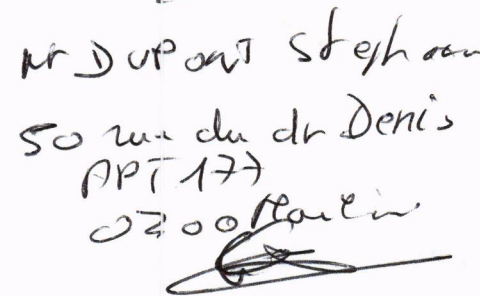 Mr DUPONT Stephan
50 rue du dr Denis
APT 177
03000 Moulin